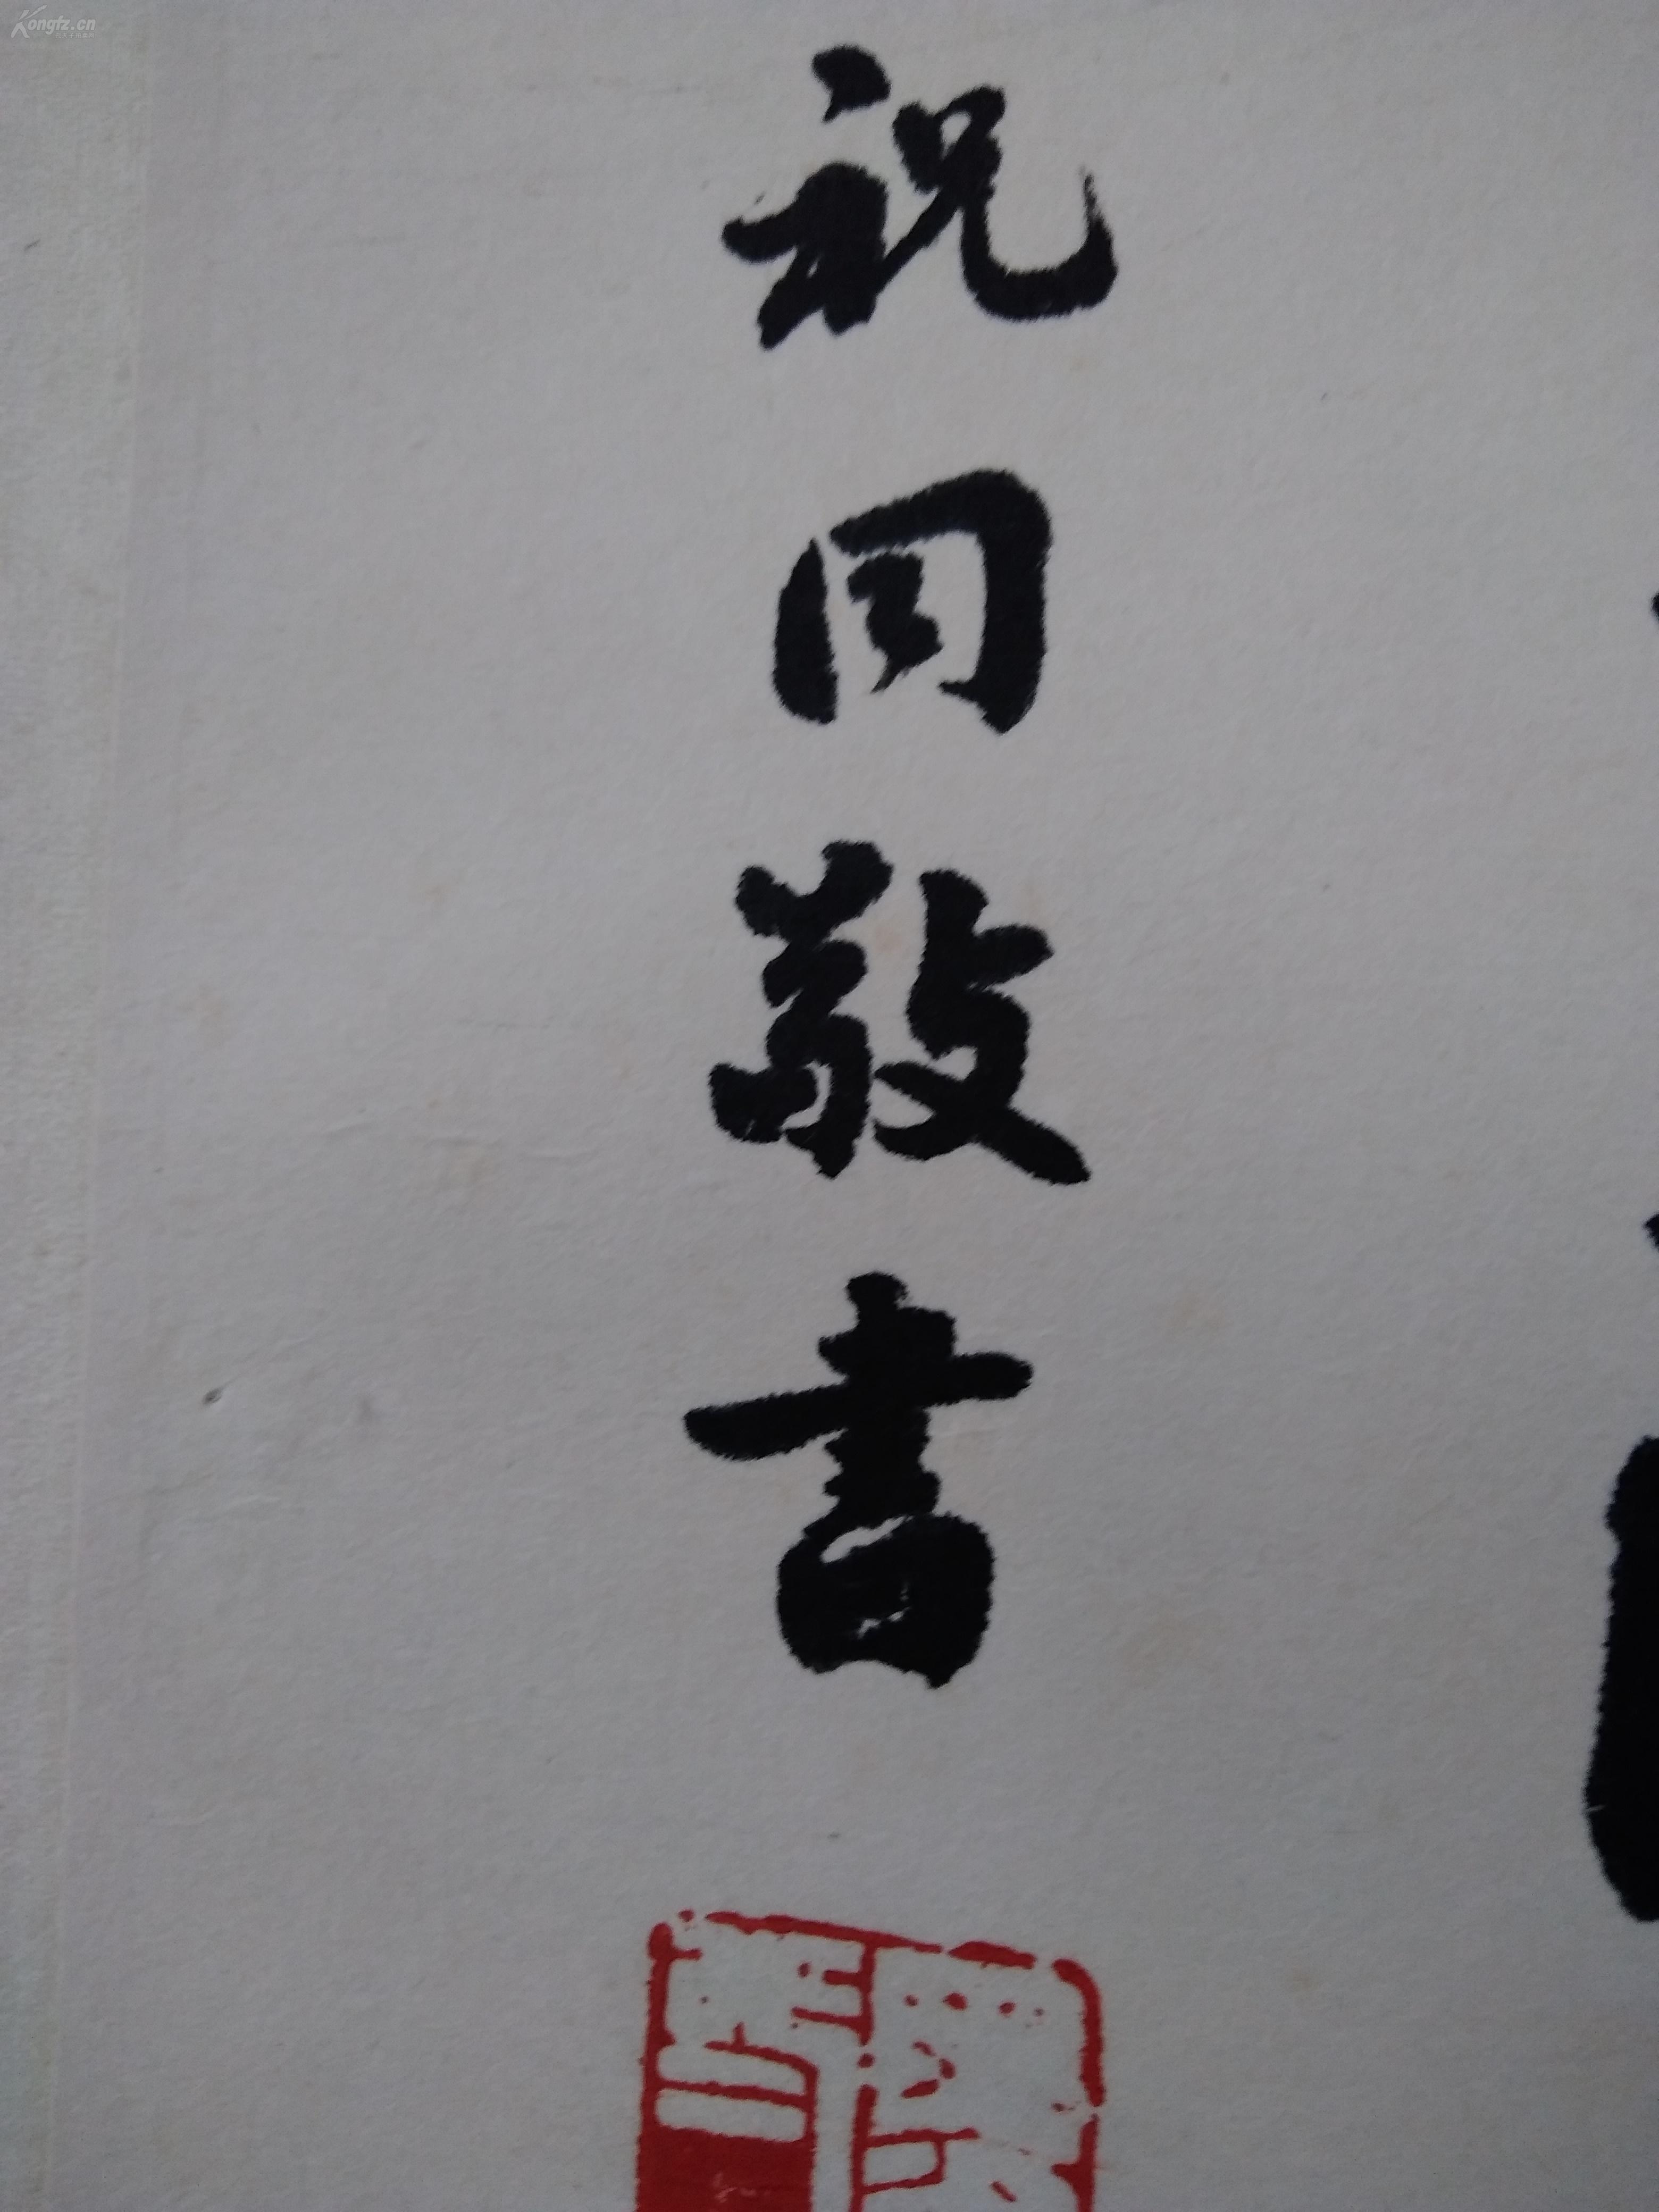 Kongfz.cn
祝同敬書